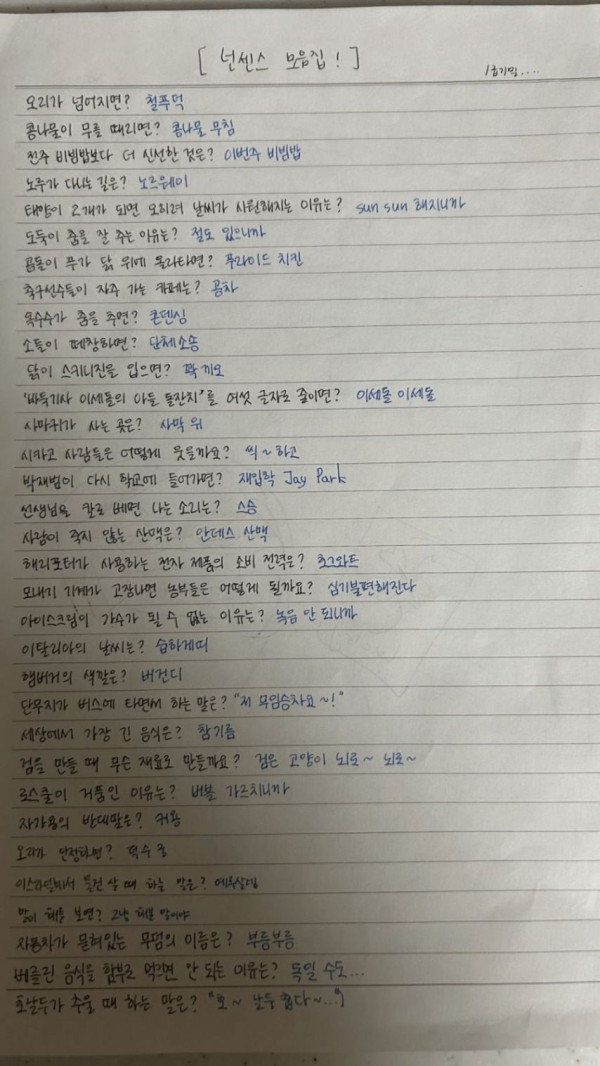 [ 넌센스 모음집! ]
오리가 넘어지면? 철푸덕
콩나물이 무를 때리면? 콩나물 무침
전주 비빔밥보다 더 신선한 것은? 이번주 비빔밥
노루가 다니는 길은? 노르웨이
태양이 2개가 되면 오히려 날씨가 시원해지는 이유는? sun sun 해지니까
도둑이 춤을 잘 추는 이유는? 절도 있으니까
곰돌이 푸가 닭 위에 올라타면? 푸라이드 치킨
축구선수들이 자주 가는 카페는? 공차
옥수수가 춤을 추면? 콘댄싱
소들이 떼창하면? 단체소송
닭이 스키니진을 입으면? 꽉 끼오
'바둑기사 이세돌의 아들 돌잔치'를 여섯 글자로 줄이면? 이세돌 이세돌
사마귀가 사는 곳은? 사막 위
시카고 사람들은 어떻게 웃을까요? 씩~하고
박재범이 다시 학교에 들어가면? 재입학 Jay Park
선생님을 칼로 베면 나는 소리는? 스승
사람이 죽지 않는 산맥은? 안데스 산맥
해리포터가 사용하는 전자 제품의 소비 전력은? 호그와트
모내기 기계가 고장나면 농부들은 어떻게 될까요? 심기불편해진다
아이스크림이 가수가 될 수 없는 이유는? 녹음 안 되니까
이탈리아의 날씨는? 습하게띠
햄버거의 색깔은? 버건디
단무지가 버스에 타면서 하는 말은? "저 무임승차요~!"
세상에서 가장 긴 음식은? 참기름
검을 만들 때 무슨 재료로 만들까요? 검은 고양이 뇌로~ 뇌로~
로스쿨이 거품인 이유는? 버블 가르치니까
자가용의 반대말은? 커용
오리가 단정하면? 덕수궁
이스라엘에서 물건 살 때 하는 말은? 예루살렘
말이 해를 보면? 그냥 해본 말이야
자용자가 묻혀있는 무덤의 이름은? 부릉부릉
버클린 음식을 함부로 먹으면 안 되는 이유는? 독일 수도...
호날두가 추울 때 하는 말은? "호~ 날두 춥다~..."